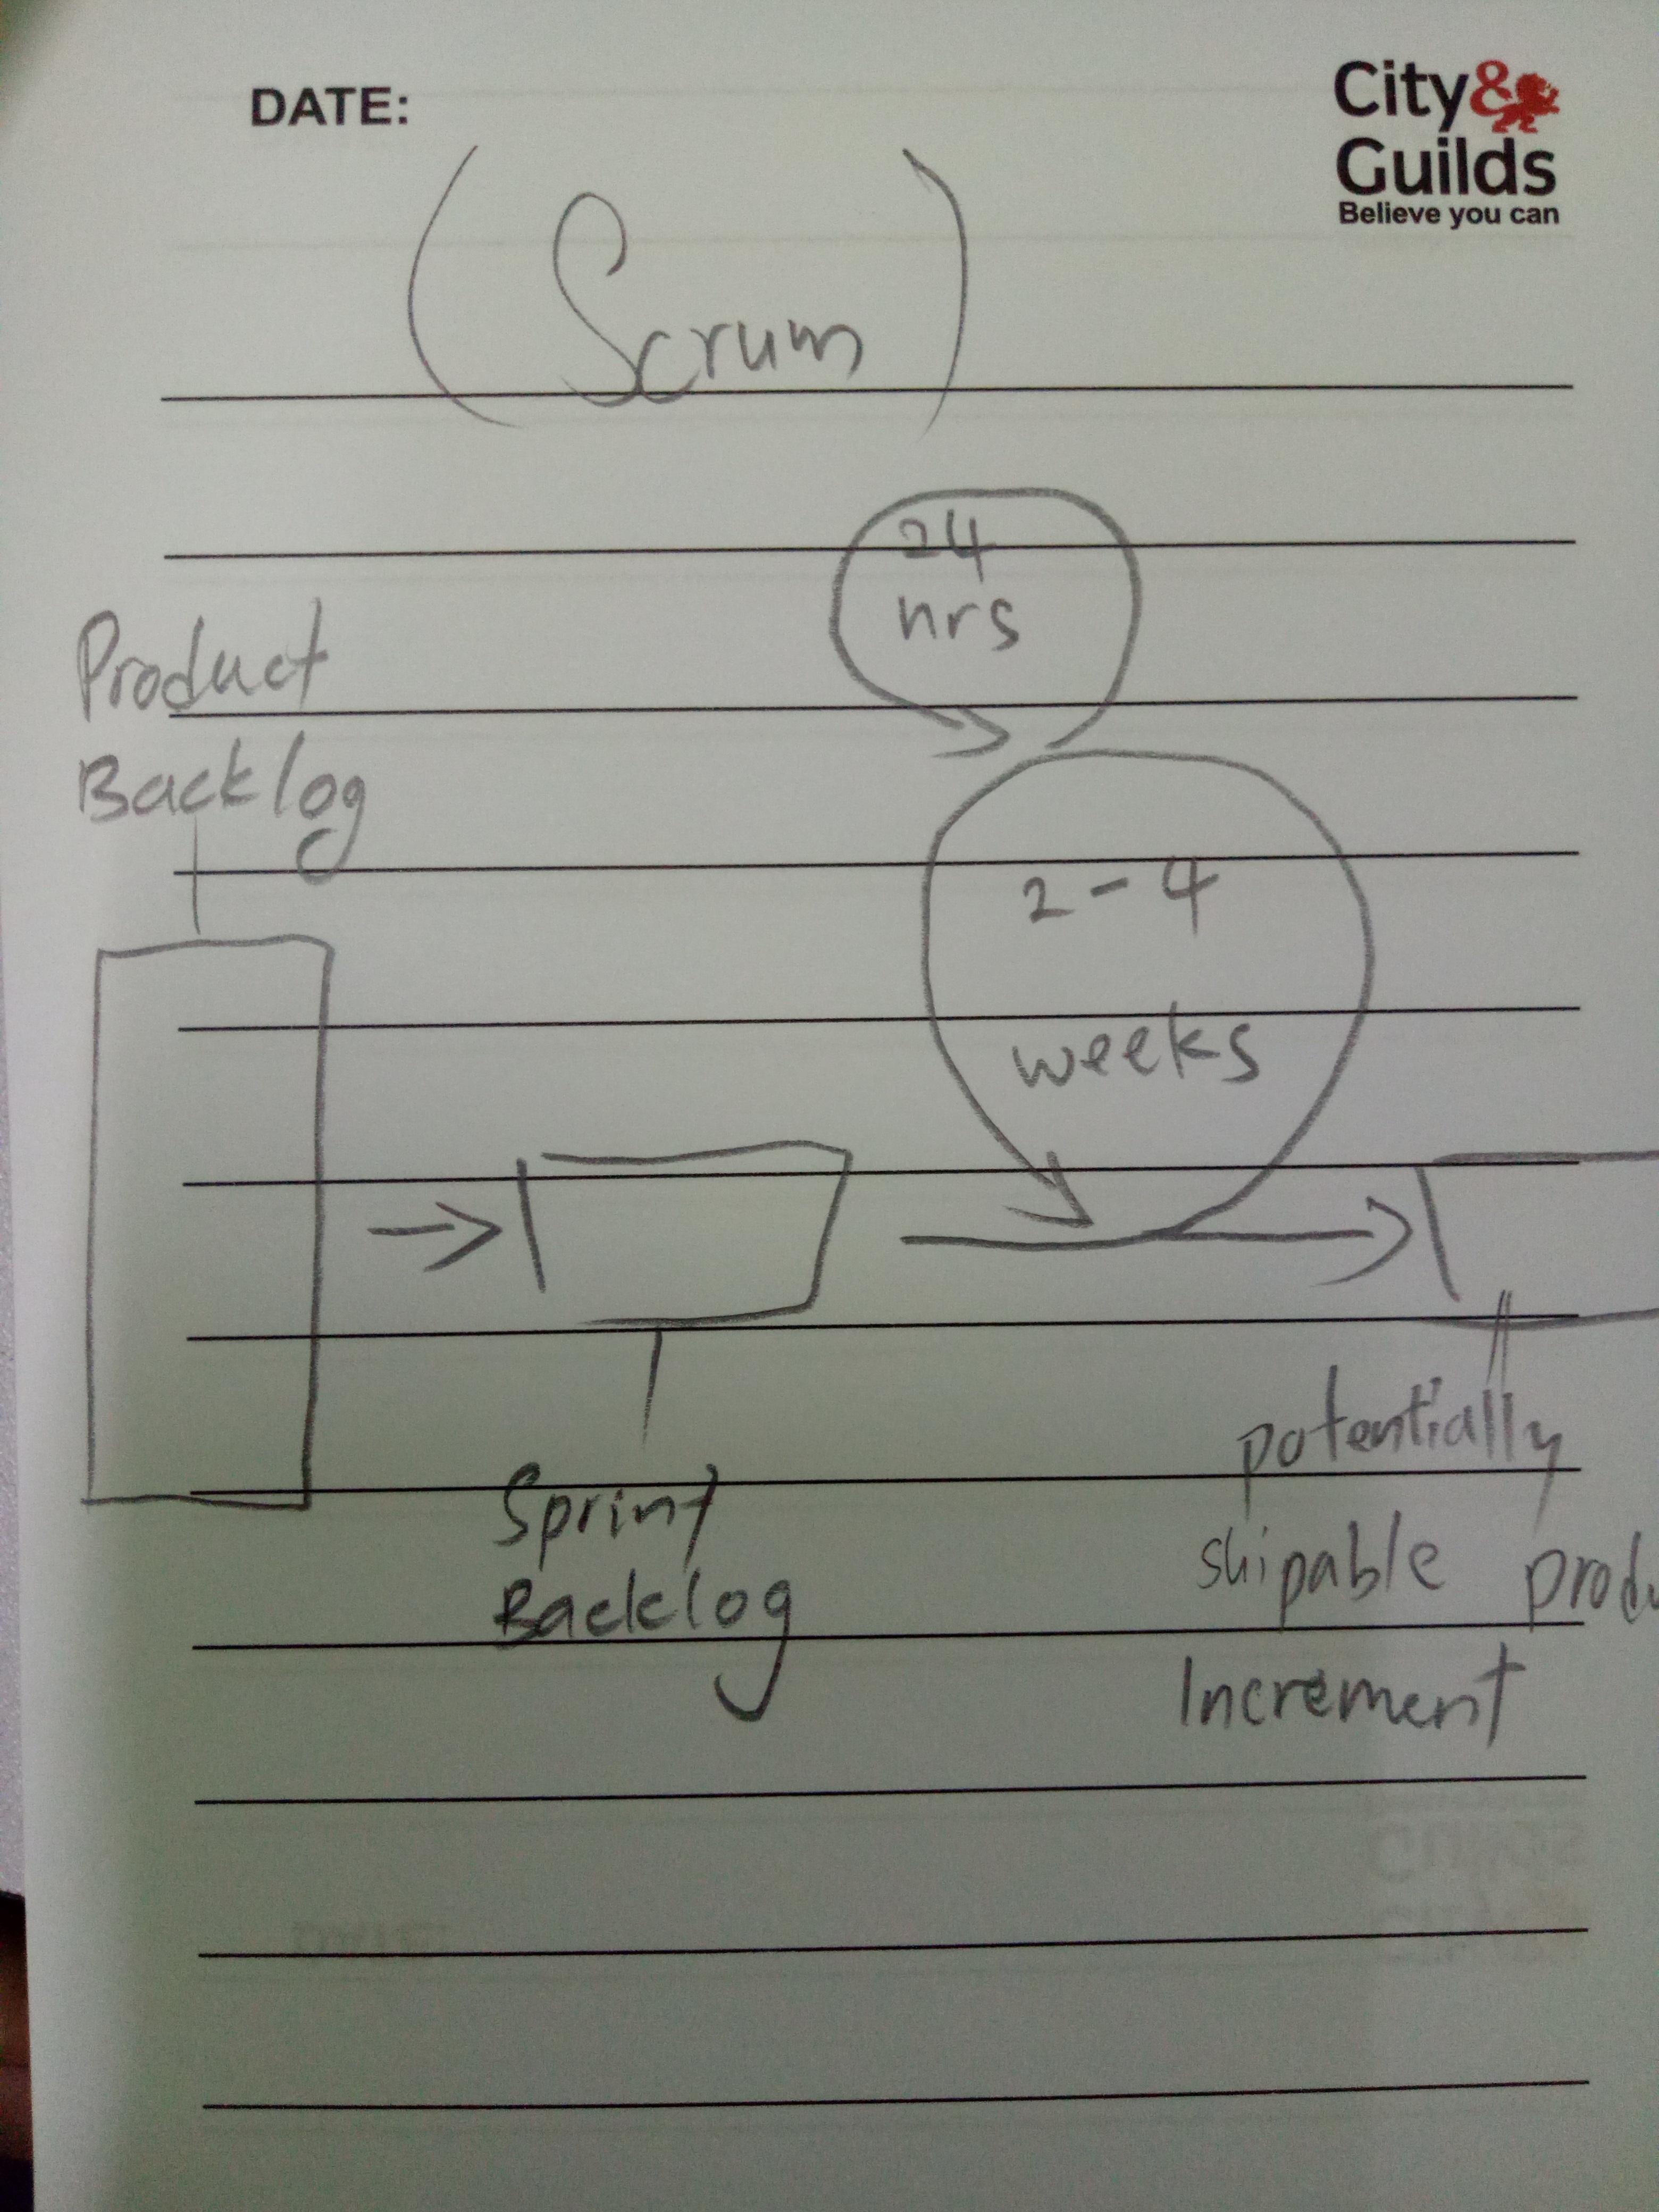 DATE:
City&
Guilds
Believe you can
(Scrum)
24
hrs
Product
Backlog
2-4
weeks
Sprint
Backlog
potentially
shipable produ
Increment